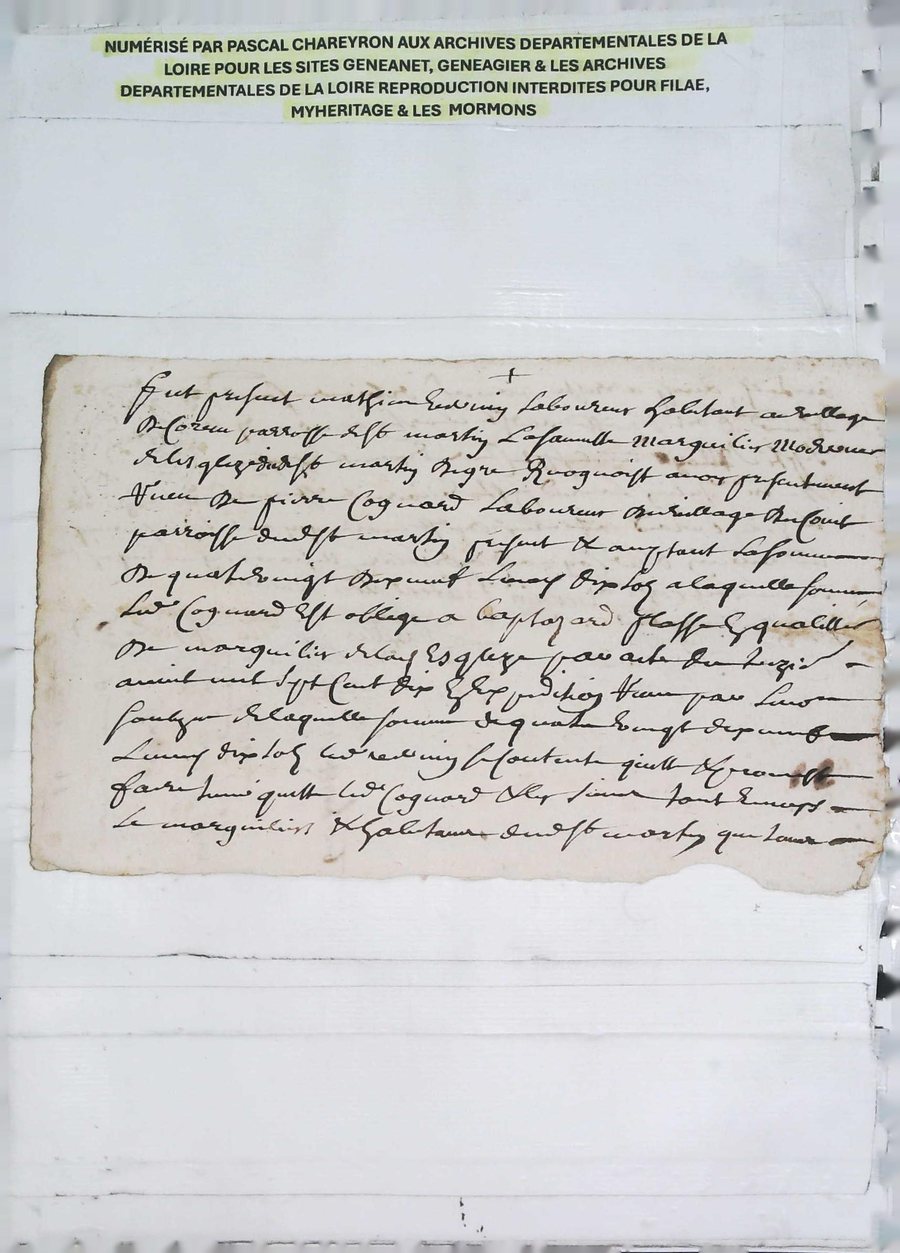 NUMÉRISÉ PAR PASCAL CHAREYRON AUX ARCHIVES DEPARTEMENTALES DE LA
LOIRE POUR LES SITES GENEANET, GENEAGIER & LES ARCHIVES
DEPARTEMENTALES DE LA LOIRE REPRODUCTION INTERDITES POUR FILAE,
MYHERITAGE & LES MORMONS
+
fut present mathieu laboureur habitant au village
de parroisse de st martin Lasauvette marguilier moderne
de lesglize dud st martin de gre Recognoist avoir presentement
de pierre Cognard Laboureur du village du
parroisse dud st martin present & la somme
de quatre vingt dix neuf Livres dix solz a laquelle somme
Led Cognard est oblige a qualitté
de marguilier de lad Esglize par acte du
avril mil sept Cent dix & Expedition par
de laquelle somme de quatre vingt dix neuf
Livres dix solz led se contente quitte & promest
faire tenir quitte led Cognard & les siens tant envers
Le marguilier & habitans dud st martin que tous